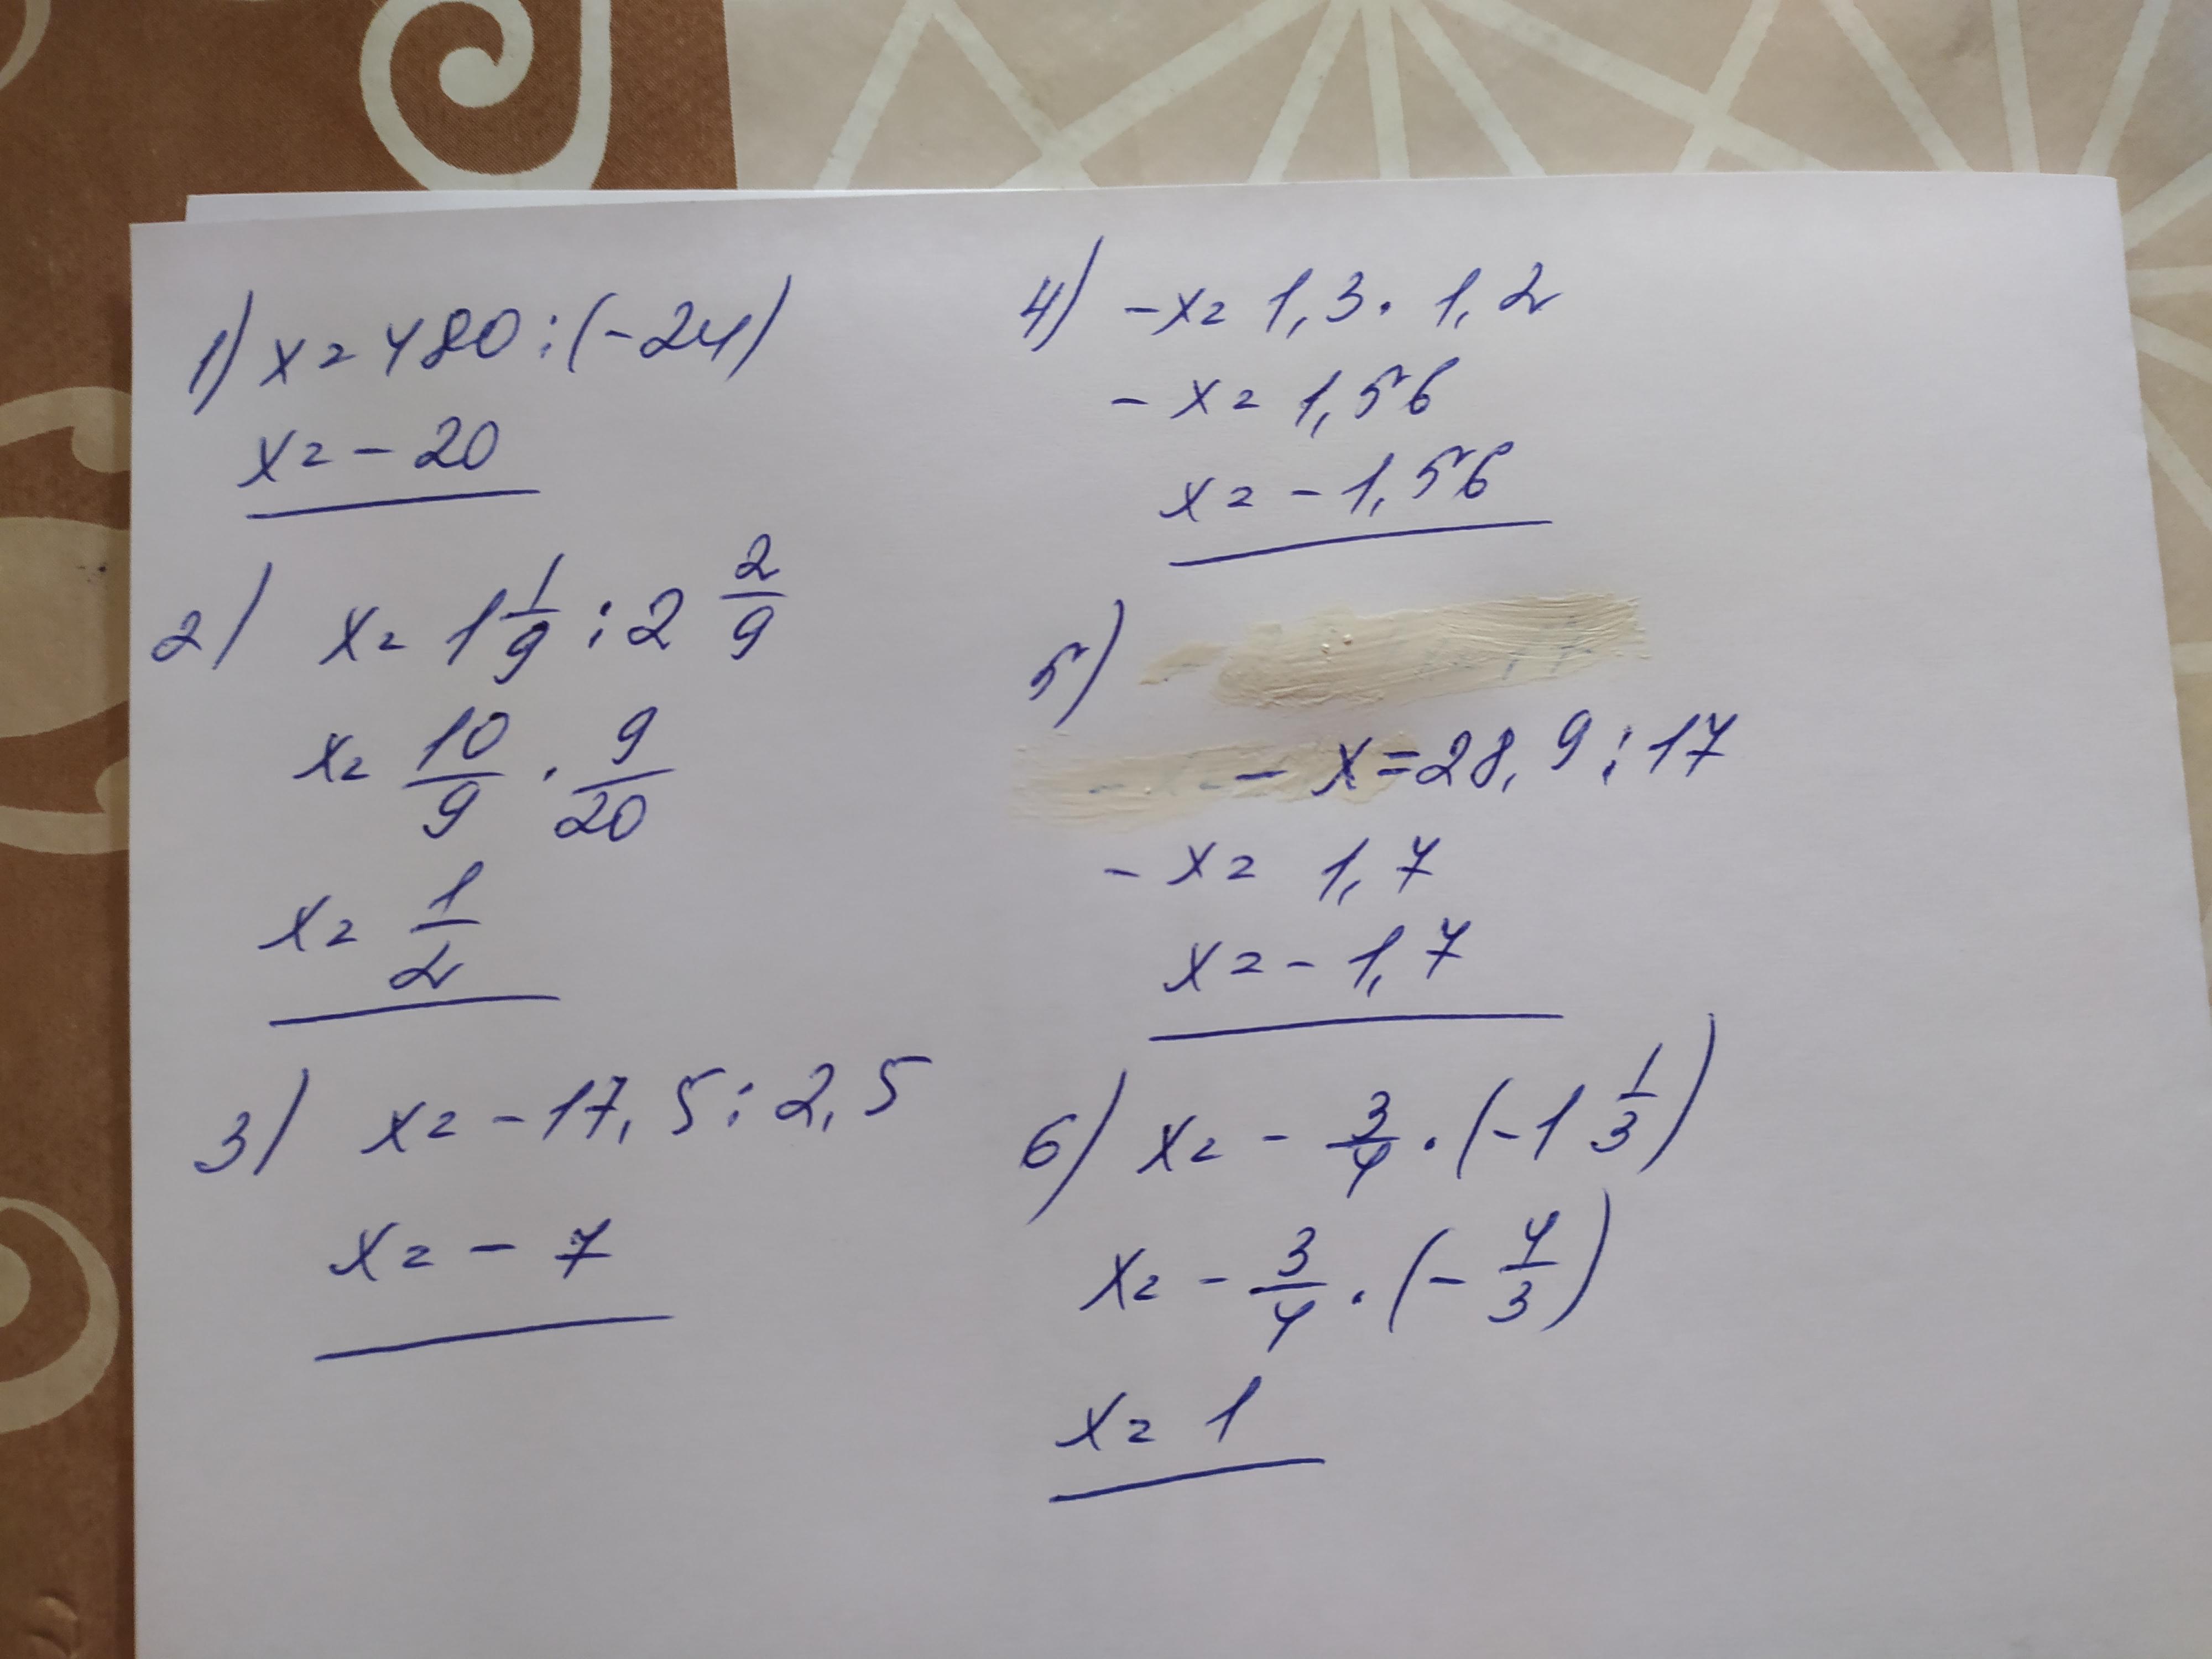 1) x = 480 : (-24)
x = - 20
2) x = 1 1/9 : 2 2/9
x = 10/9 · 9/20
x = 1/2
3) x = -17,5 : 2,5
x = - 7
4) -x = 1,3 · 1,2
- x = 1,56
x = - 1,56
5)
- x = 28,9 : 17
- x = 1,7
x = - 1,7
6) x = - 3/4 · (-1 1/3)
x = - 3/4 · (- 4/3)
x = 1